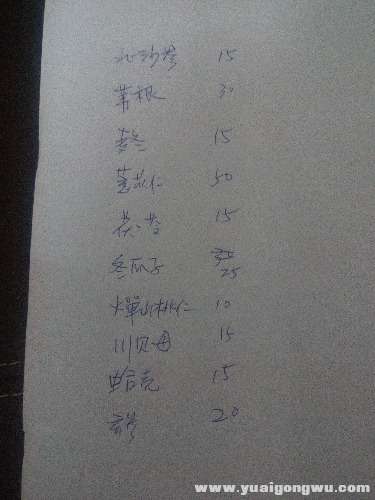 北沙参 15
苇根 30
麦冬 15
薏苡仁 50
茯苓 15
冬瓜子 25
燀山桃仁 10
川贝母 15
蛤壳 15
20
www.yuaigongwu.com